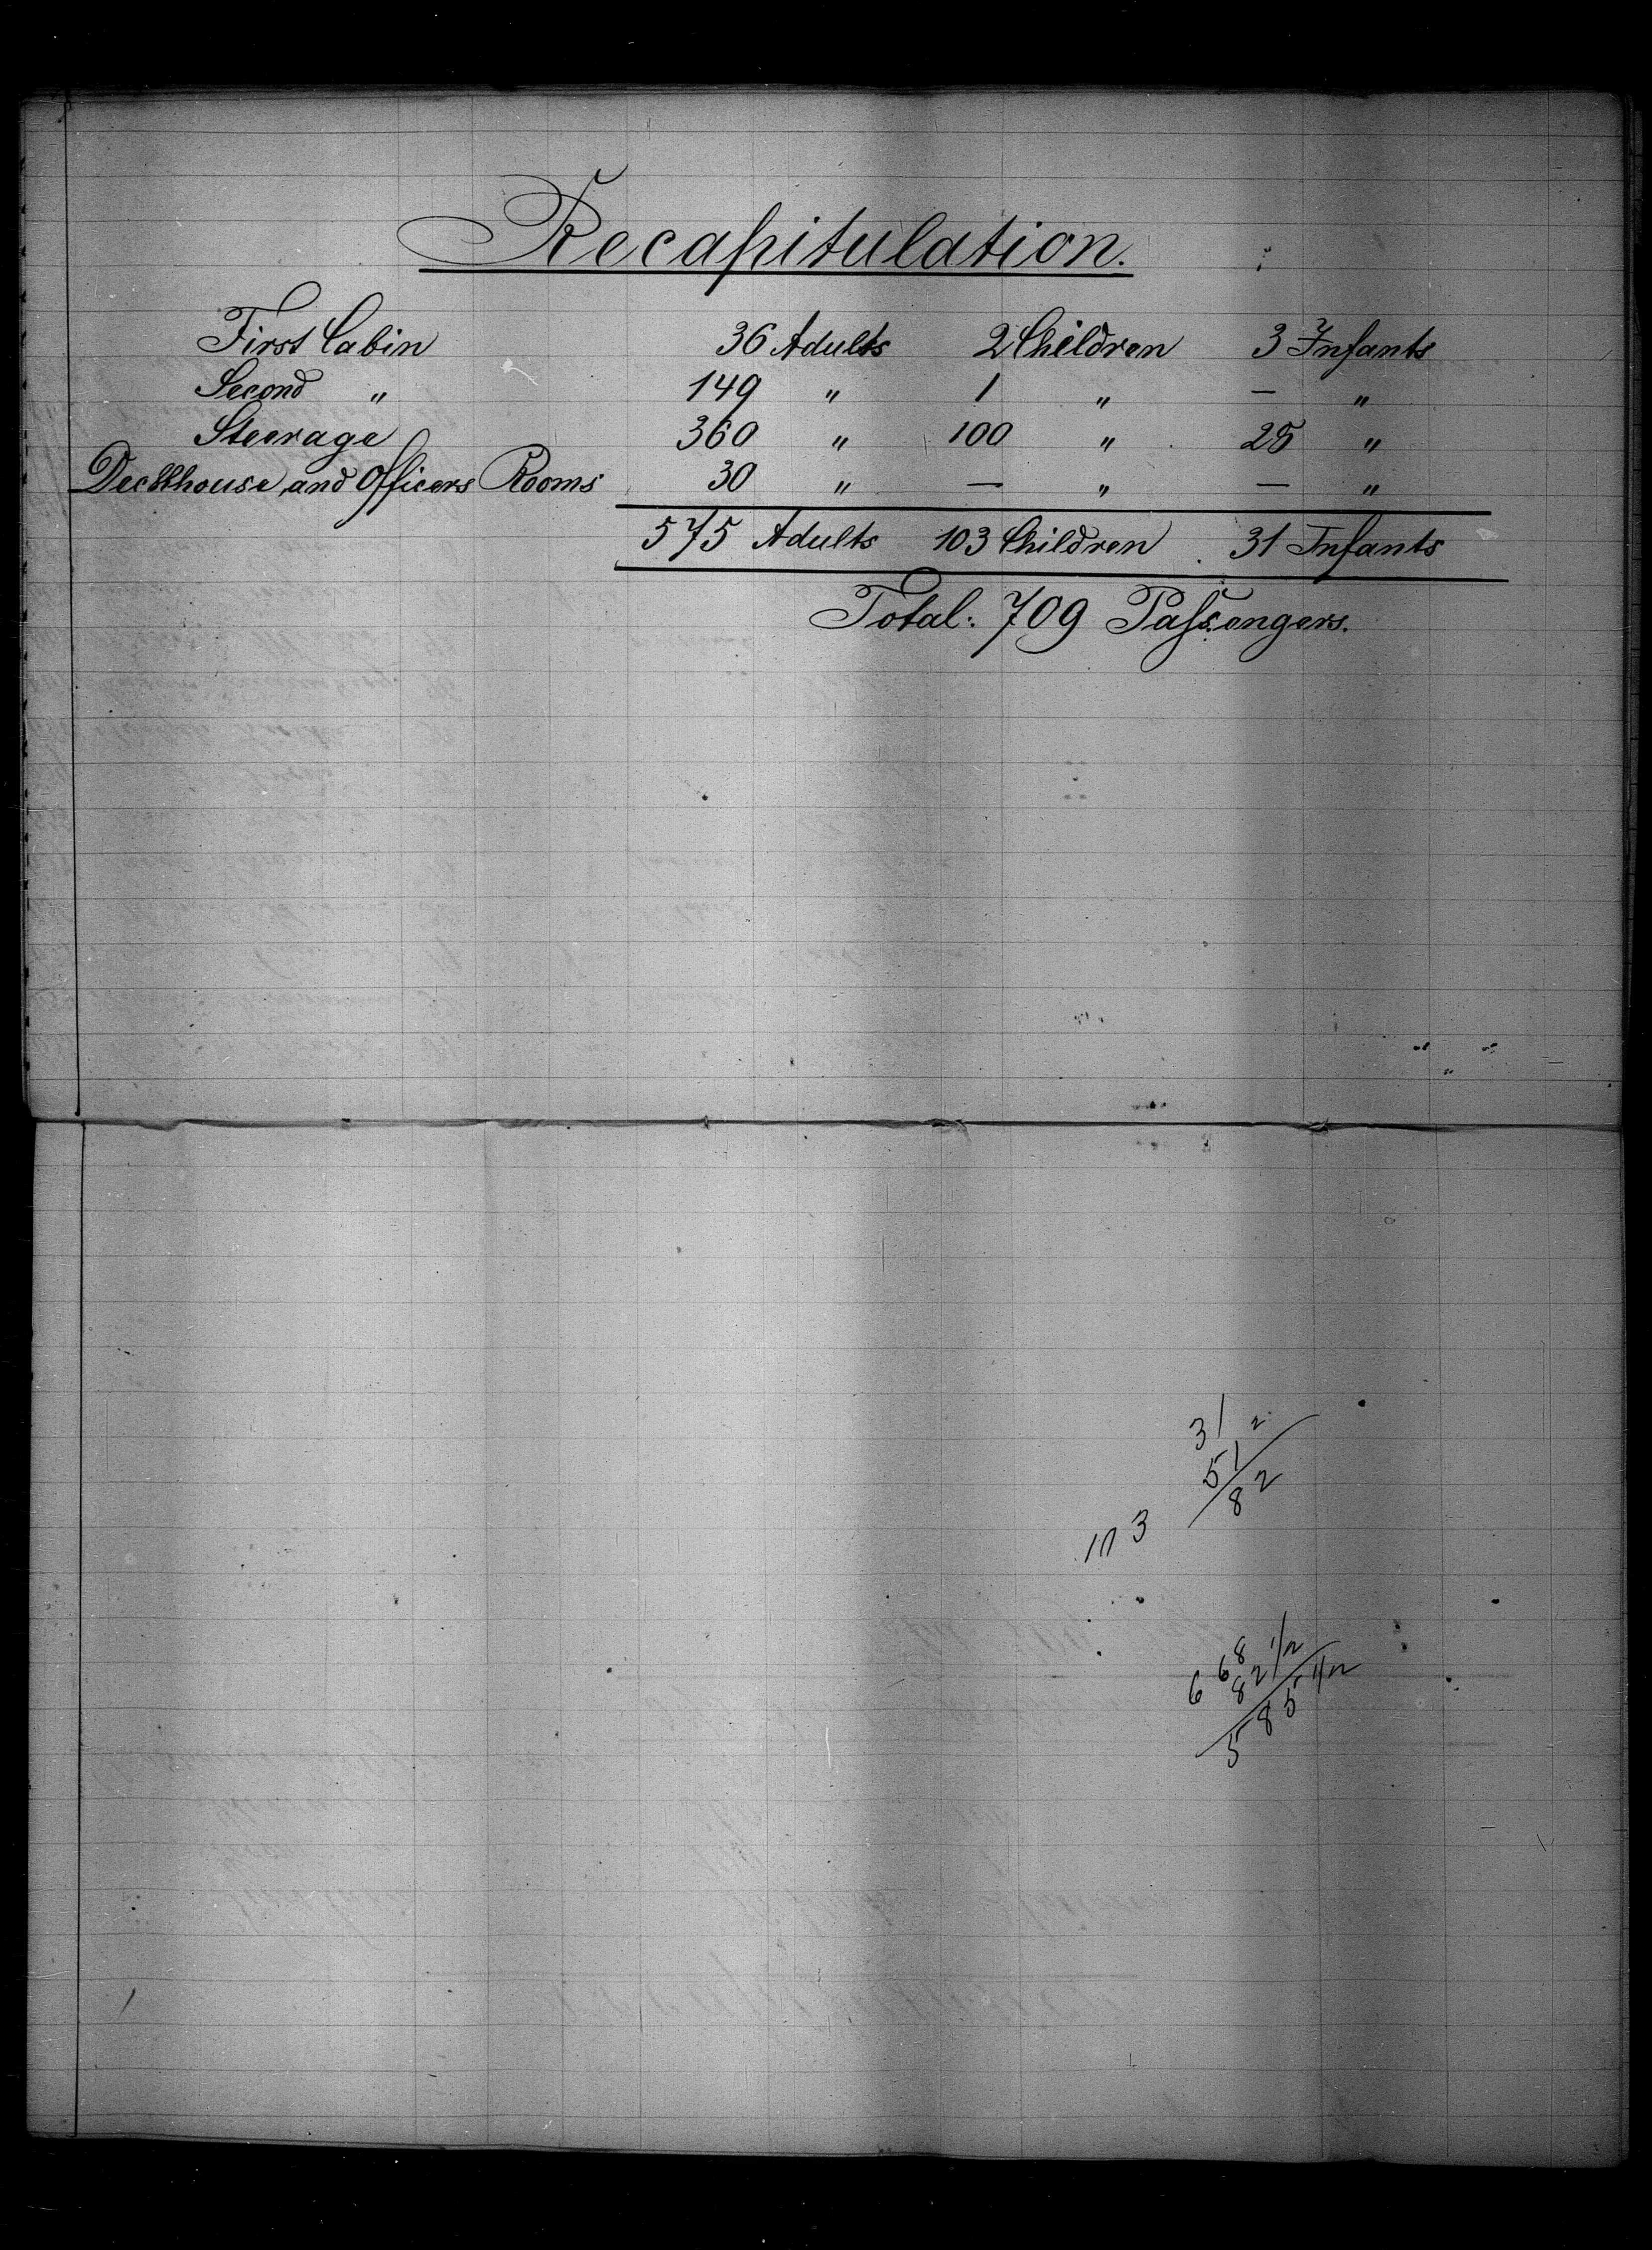 Recapitulation.
First Cabin 36 Adults 2 Children 3 Infants
Second " 149 " 1 " — "
Steerage 360 " 100 " 28 "
Deckhouse and Officers Rooms 30 " — " — "
575 Adults 103 Children 31 Infants
Total: 709 Passengers.
31
51
82
103
668
82 1/2
585 1/2